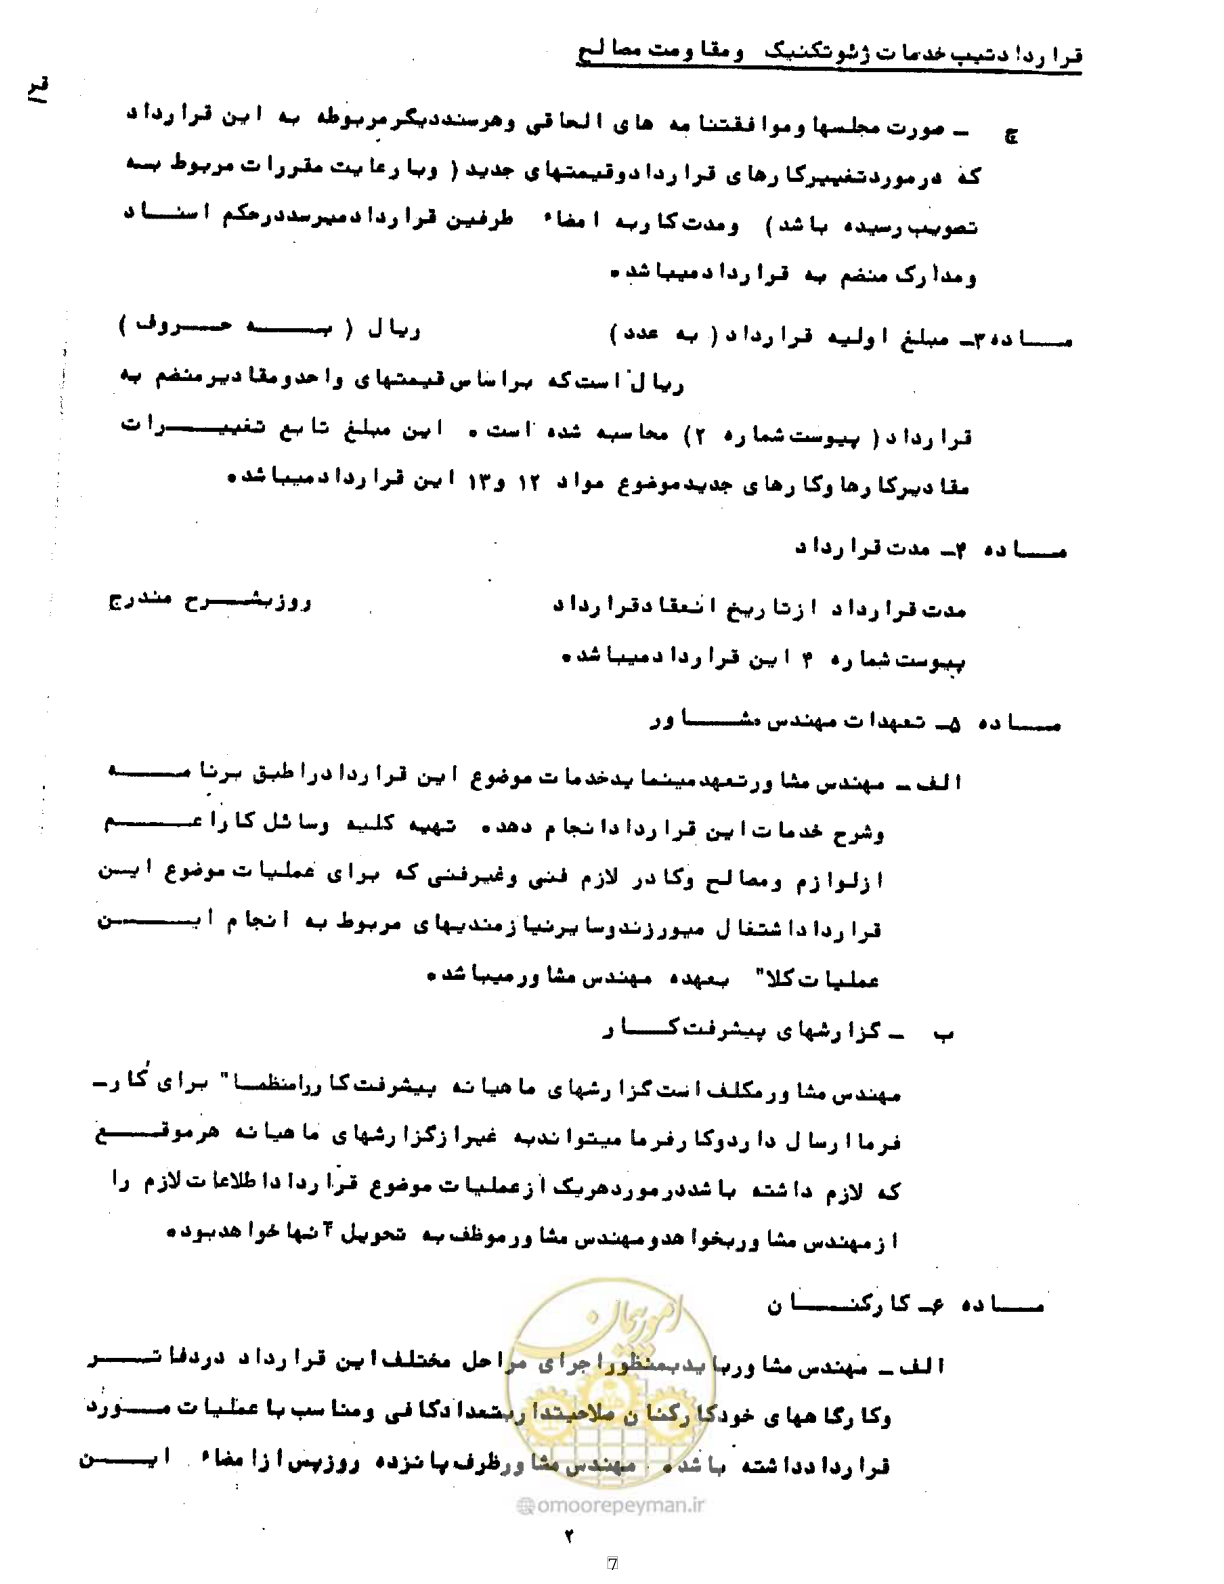 قرارداد تیپ خدمات ژئوتکنیک و مقاومت مصالح
قر
چ ـ صورت مجلسها و موافقتنامه های الحاقی و هر سند دیگر مربوطه به این قرارداد
که در مورد تغییر کارهای قرارداد و قیمتهای جدید ( و با رعایت مقررات مربوط بـه
تصویب رسیده باشد ) و مدت کار به امضاء طرفین قرارداد میرسد در حکم اسنـــاد
و مدارک منضم به قرارداد میباشد.
مـــاده ۳ـ مبلغ اولیه قرارداد ( به عدد ) ریال ( بـــه حـــروف )
ریال است که بر اساس قیمتهای واحد و مقادیر منضم به
قرارداد ( پیوست شماره ۲ ) محاسبه شده است . این مبلغ تابع تغییـــرات
مقادیر کارها و کارهای جدید موضوع مواد ۱۲ و ۱۳ این قرارداد میباشد.
مـــاده ۴ـ مدت قرارداد
مدت قرارداد از تاریخ انعقاد قرارداد روز بشـــرح مندرج
پیوست شماره ۴ این قرارداد میباشد.
مـــاده ۵ـ تعهدات مهندس مشـــاور
الف ـ مهندس مشاور تعهد مینماید خدمات موضوع این قرارداد را طبق برنامـــه
و شرح خدمات این قرارداد انجام دهد. تهیه کلیه وسائل کار اعـــم
از لوازم و مصالح و کادر لازم فنی و غیر فنی که برای عملیات موضوع ایـن
قرارداد اشتغال میورزند و سایر نیازمندیهای مربوط به انجام ایـــن
عملیات کلا" بعهده مهندس مشاور میباشد.
ب ـ گزارشهای پیشرفت کـــار
مهندس مشاور مکلف است گزارشهای ماهیانه پیشرفت کار را منظمـا" برای کار ـ
فرما ارسال دارد و کارفرما میتواند به غیر از گزارشهای ماهیانه هر موقـــع
که لازم داشته باشد در مورد هر یک از عملیات موضوع قرارداد اطلاعات لازم را
از مهندس مشاور بخواهد و مهندس مشاور موظف به تحویل آنها خواهد بود.
مـــاده ۶ـ کارکنـــان
الف ـ مهندس مشاور باید بمنظور اجرای مراحل مختلف این قرارداد در دفاتـــر
و کارگاههای خود کارکنان صلاحیتدار بتعداد کافی و مناسب با عملیات مـــورد
قرارداد داشته باشد. مهندس مشاور ظرف پانزده روز پس از امضاء ایـــن
امور پیمان
@omoorepeyman.ir
۲
7